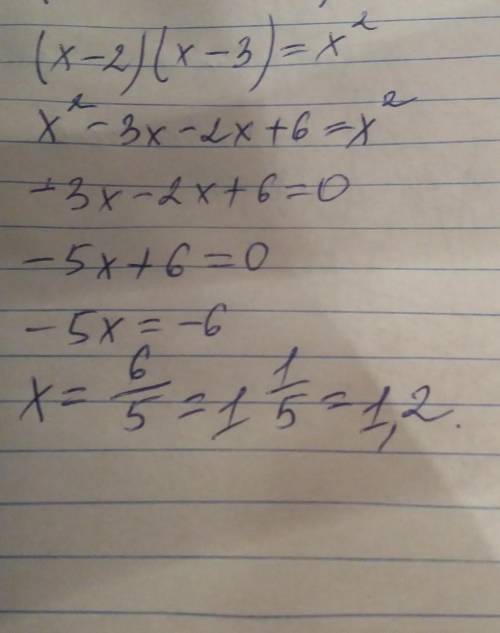 (x-2)(x-3)=x²
x²-3x-2x+6=x²
-3x-2x+6=0
-5x+6=0
-5x=-6
x=6/5=1 1/5=1,2.